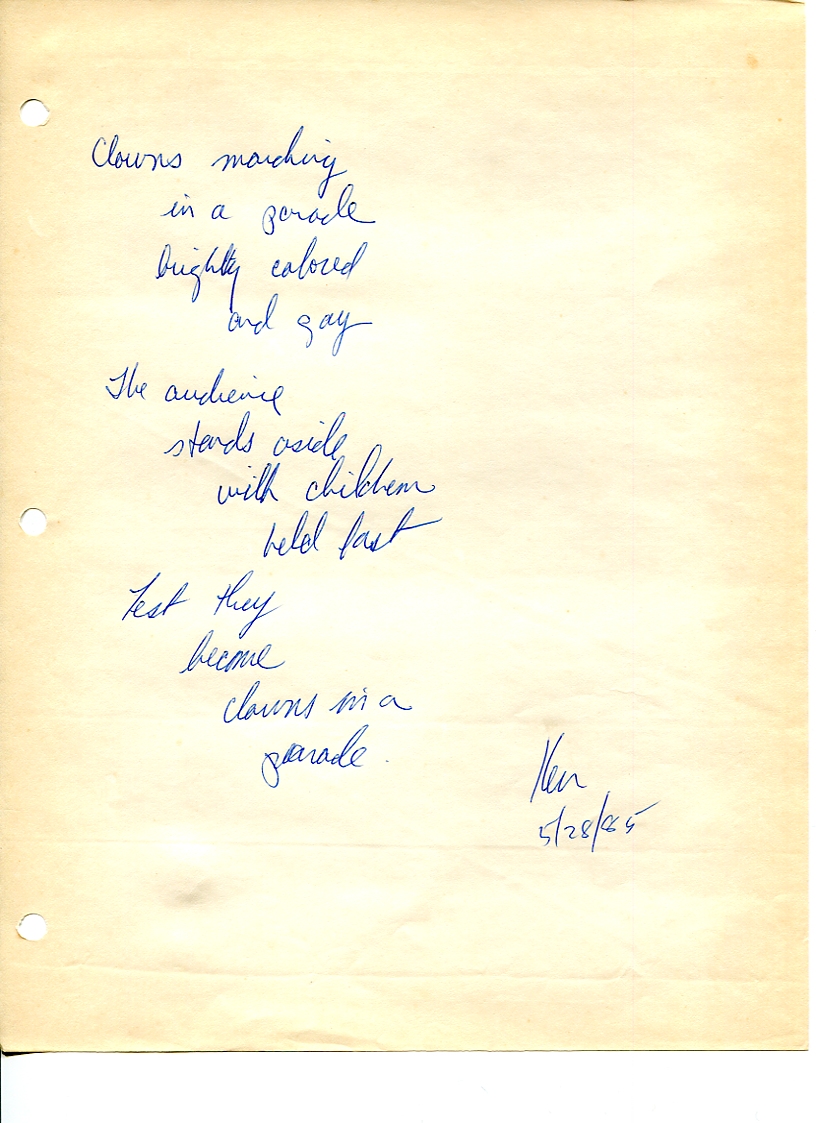 Clowns marching
in a parade
brightly colored
and gay
The audience
stands aside
with children
held fast
Lest they
become
clowns in a
parade.
Ken
5/28/85